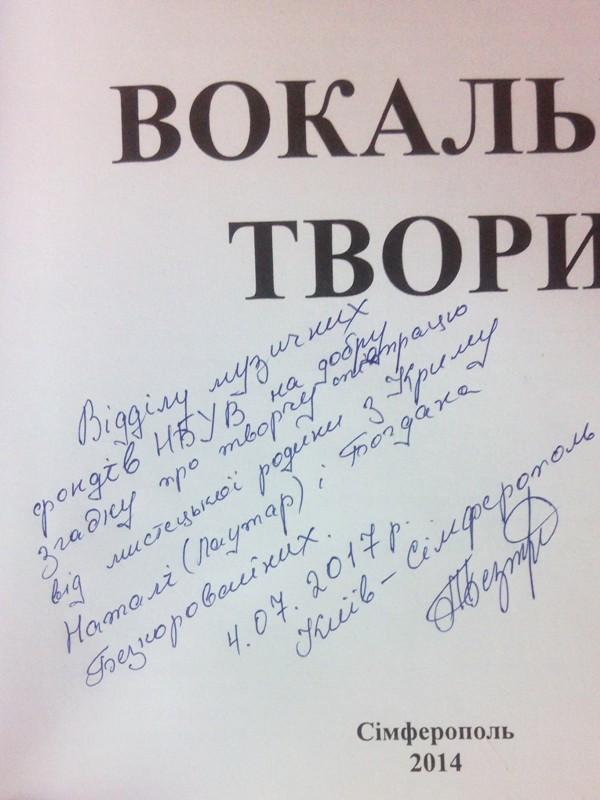 ВОКАЛЬ
ТВОРИ
Відділу музичних
фондів НБУВ на добру
згадку про творчу співпрацю
від мистецької родини з Криму
Наталі (Лаутар) і Богдана
Безкоровайних.
4.07.2017р.
Київ – Сімферополь
Сімферополь
2014